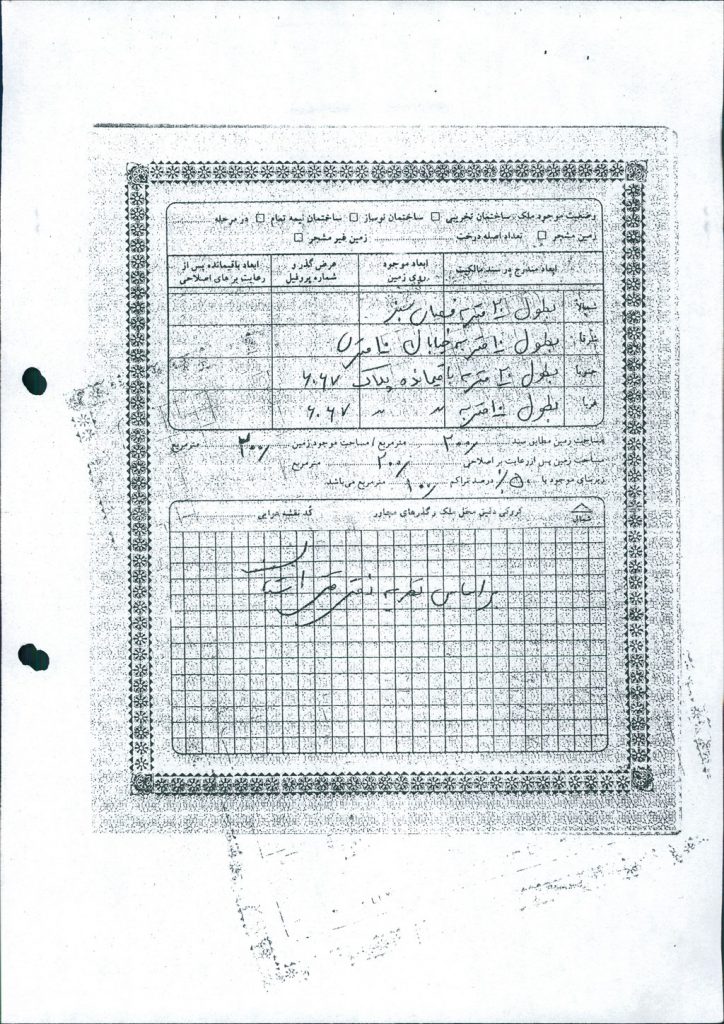 وضعیت موجود ملک: ساختمان تخریبی □ ساختمان نوساز □ ساختمان نیمه تمام □ در مرحله
زمین مشجر □ تعداد اصله درخت .......... زمین غیر مشجر □
ابعاد مندرج در سند مالکیت
ابعاد موجود روی زمین
عرض گذر و شماره پروفیل
ابعاد باقیمانده پس از رعایت برهای اصلاحی
شمالاً: بطول ۲۰ متر به فضای سبز
شرقاً: بطول ۱۰ متر به خیابان ۱۰ متری
جنوباً: بطول ۲۰ متر به باقیمانده پلاک ۶۰۶۷
غرباً: بطول ۱۰ متر به 〃 〃 ۶۰۶۷
مساحت زمین مطابق سند ۲۰۰ مترمربع / مساحت موجود زمین ۲۰۰ مترمربع
مساحت زمین پس از رعایت بر اصلاحی ۲۰۰ مترمربع
زیربنای موجود با ۵۰٪ درصد تراکم ۱۰۰ مترمربع می‌باشد.
شمال
کروکی دقیق محل ملک و گذرهای مجاور
کد نقشه هوایی
بر اساس